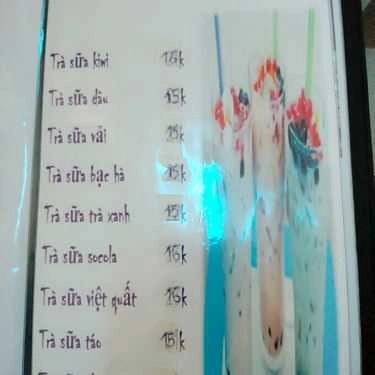 Trà sữa kiwi
Trà sữa dâu 15k
Trà sữa vải 15k
Trà sữa bạc hà 15k
Trà sữa trà xanh 15k
Trà sữa socola
Trà sữa việt quất
Trà sữa táo 15k